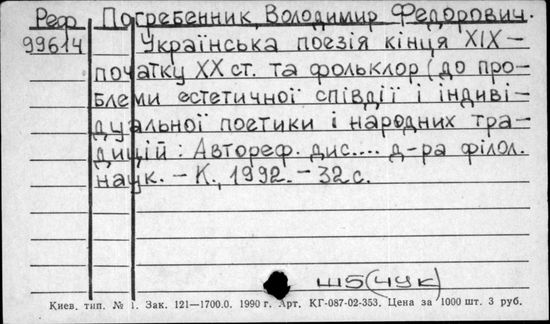 Реф Погребенник, Володимир Федорович.
99614 Українська поезія кінця XIX –
початку XX ст. та фольклор (до про-
блеми естетичної співдії і індиві-
дуальної поетики і народних тра-
дицій : Автореф. дис.... д-ра філол.
наук. – К., 1992. – 32 с.
ШБ(ЧУК)
Киев. тип. № 1. Зак. 121—1700.0. 1990 г. Арт. КГ-087-02-353. Цена за 1000 шт. 3 руб.